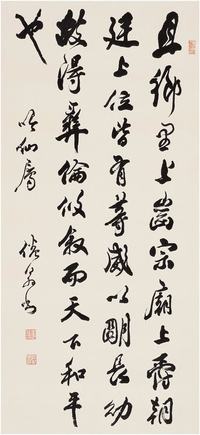 且鄉里上齒宗廟上爵朝
廷上位皆有等威以明長幼
故得彝倫攸敘而天下和平
也